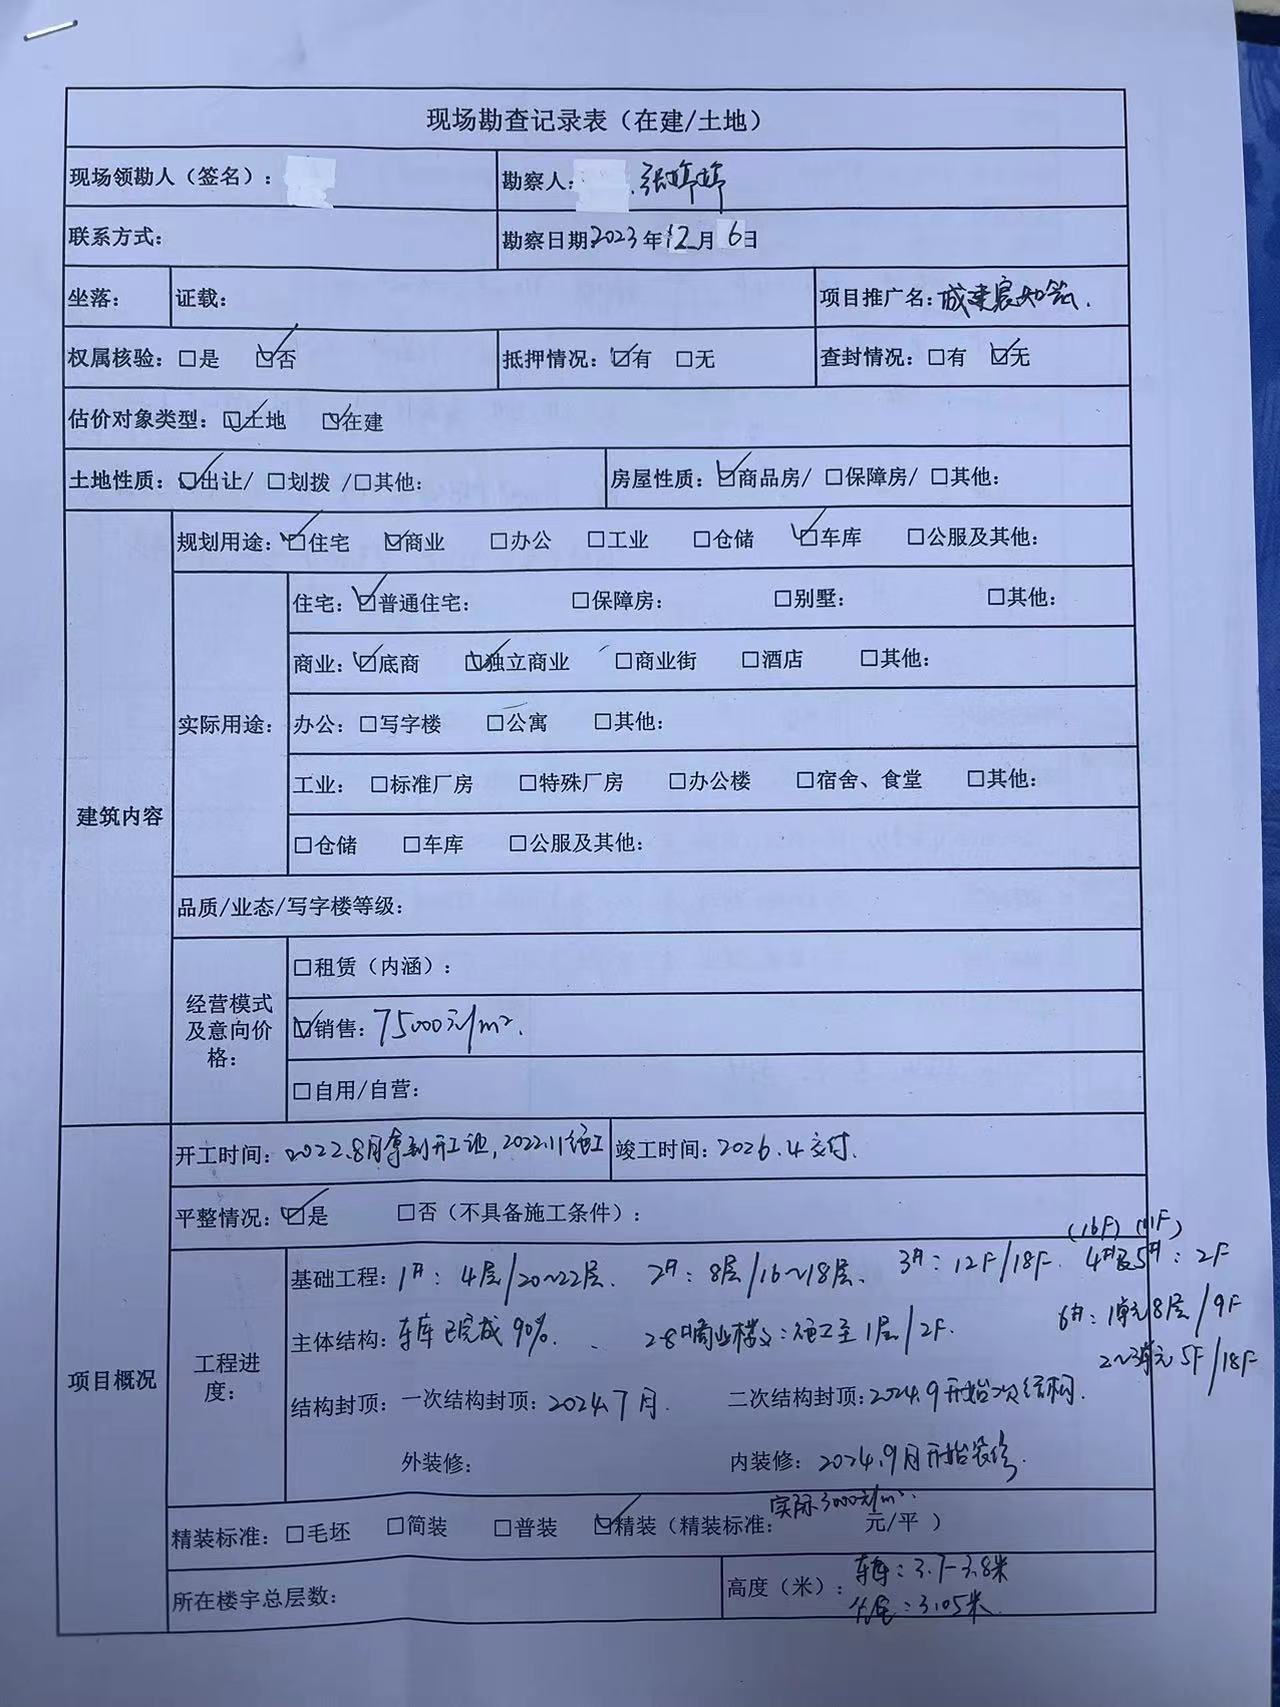 现场勘查记录表（在建/土地）
现场领勘人（签名）： 勘察人： 、张婷婷
联系方式： 勘察日期：2023年12月6日
坐落： 证载： 项目推广名：成建宸知筑.
权属核验：□是 ☑否 抵押情况：☑有 □无 查封情况：□有 ☑无
估价对象类型：☑土地 ☑在建
土地性质：☑出让/ □划拨 /□其他： 房屋性质：☑商品房/ □保障房/ □其他：
建筑内容
规划用途：☑住宅 ☑商业 □办公 □工业 □仓储 ☑车库 □公服及其他：
实际用途：
住宅：☑普通住宅： □保障房： □别墅： □其他：
商业：☑底商 ☑独立商业 □商业街 □酒店 □其他：
办公：□写字楼 □公寓 □其他：
工业： □标准厂房 □特殊厂房 □办公楼 □宿舍、食堂 □其他：
□仓储 □车库 □公服及其他：
品质/业态/写字楼等级：
经营模式
及意向价
格：
□租赁（内涵）：
☑销售：75000元/m².
□自用/自营：
项目概况
开工时间：2022.8月拿到开工证，2022.11施工 竣工时间：2026.4交付.
平整情况：☑是 □否（不具备施工条件）：
工程进
度：
(16F) (11F)
基础工程：1#：4层/20~22层. 2#：8层/16~18层. 3#：12F/18F. 4#及5#：2F
主体结构：车库已完成90%. 2-8#商业楼：施工至1层/2F. 6#：1单元8层/9F
2~3单元5F/18F
结构封顶：一次结构封顶：2024.7月. 二次结构封顶：2024.9开始二次结构.
外装修： 内装修：2024.9月开始装修.
实际3000元/m².
精装标准：□毛坯 □简装 □普装 ☑精装（精装标准： 元/平 ）
所在楼宇总层数： 高度（米）：车库：3.7-3.8米
住宅：3.05米.